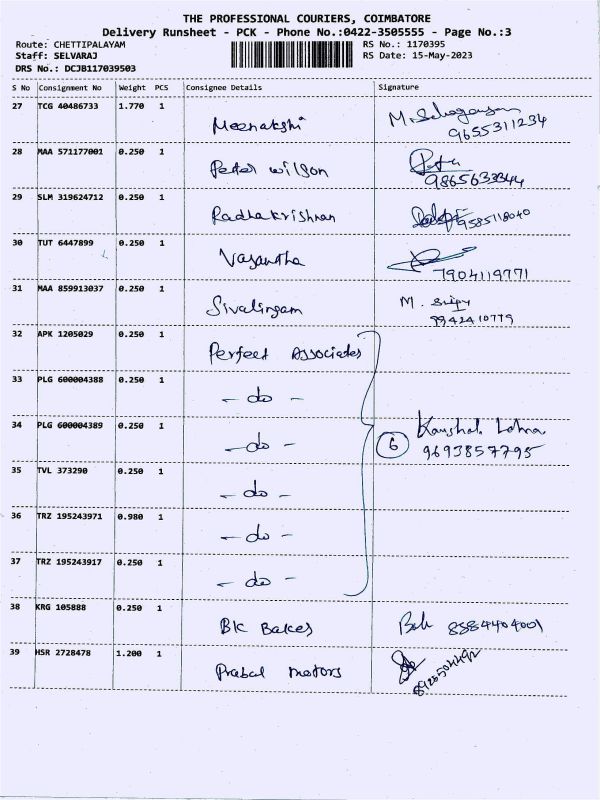 THE PROFESSIONAL COURIERS, COIMBATORE
Delivery Runsheet - PCK - Phone No.:0422-3505555 - Page No.:3
Route: CHETTIPALAYAM RS No.: 1170395
Staff: SELVARAJ RS Date: 15-May-2023
DRS No.: DCJB117039503
S No Consignment No Weight PCS Consignee Details Signature
27 TCG 40486733 1.770 1
Meenakshi 9655311234
28 MAA 571177001 0.250 1
Peter wilson 9865633344
29 SLM 319624712 0.250 1
Radhakrishnan 9585118040
30 TUT 6447899 0.250 1
Vasantha 7904119771
31 MAA 859913037 0.250 1
Sivalingam M.
9942410779
32 APK 1205029 0.250 1
Perfect Associates
33 PLG 600004388 0.250 1
- do -
34 PLG 600004389 0.250 1
- do - 6 Kaushal
9693857795
35 TVL 373290 0.250 1
- do -
36 TRZ 195243971 0.980 1
- do -
37 TRZ 195243917 0.250 1
- do -
38 KRG 105888 0.250 1
BK Bakes 8584404001
39 HSR 2728478 1.200 1
Prabal motors